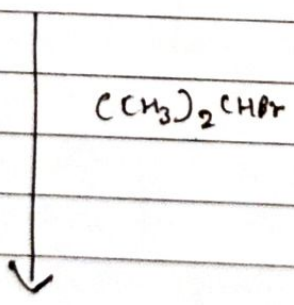 (CH₃)₂CHBr